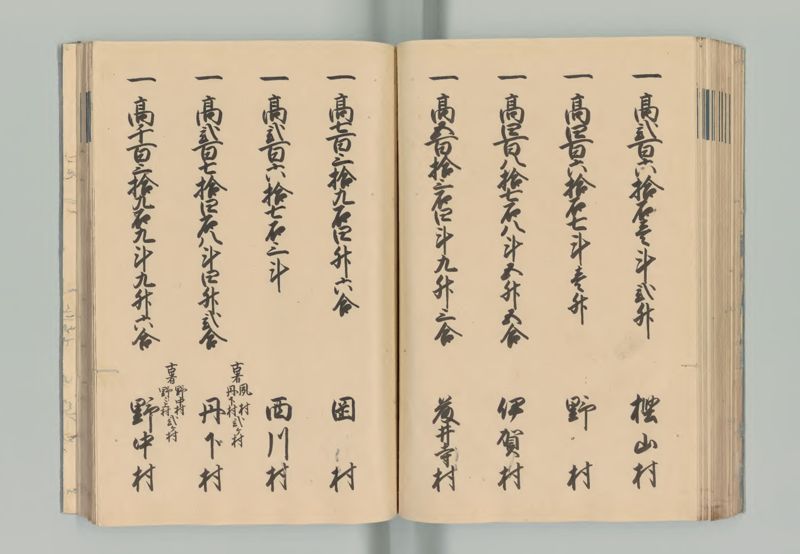 一 高弐百六拾石壱斗弐升 樫山村
一 高四百六拾石七斗壱升 野村
一 高四百八拾七石八斗五升五合 伊賀村
一 高五百拾三石四斗九升三合 葛井寺村
一 高七百三拾九石四升六合 岡村
一 高弐百六拾七石三斗 西川村
一 高弐百七拾四石八斗四升弐合 丹下村
古者 風村 丹下村 弐ケ村
一 高千百三拾九石九斗九升六合 野中村
古者 野中村 野々村 弐ケ村